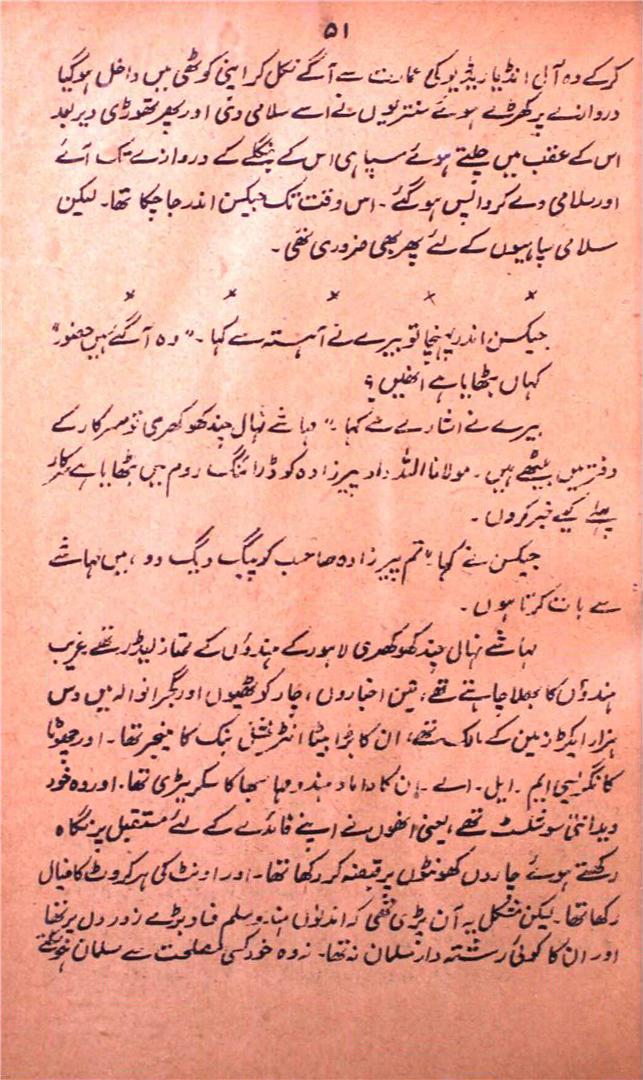 ۵۱
کرکے وہ آل انڈیا ریڈیو کی عمارت سے آگے نکل کر اپنی کوٹھی میں داخل ہو گیا
دروازے پر کھڑے ہوئے سنتریوں نے اسے سلامی دی اور پھر تھوڑی دیر بعد
اس کے عقب میں چلتے ہوئے سپاہی اس کے بنگلے کے دروازے تک آئے
اور سلامی دے کر واپس ہو گئے ۔ اس وقت تک جیکسن اندر جا چکا تھا ۔ لیکن
سلامی سپاہیوں کے لئے پھر بھی ضروری تھی ۔
× × × × ×
جیکسن اندر پہنچا تو بیرے نے آہستہ سے کہا ۔ "وہ آ گئے ہیں حضور"
کہاں بٹھایا ہے انھیں ؟
بیرے نے اشارے سے کہا ۔ " مہاشے نہال چند کھوکھری تو سرکار کے
دفتر میں بیٹھے ہیں ۔ مولانا اللہ داد پیرزادہ کو ڈرائنگ روم میں بٹھایا ہے سرکار
پہلے کسے خبر کروں ۔
جیکسن نے کہا " تم پیرزادہ صاحب کو پیگ ویگ دو ، میں مہاشے
سے بات کرتا ہوں ۔
مہاشے نہال چند کھوکھری لاہور کے ہندوؤں کے ممتاز لیڈر تھے غریب
ہندوؤں کا بھلا چاہتے تھے ، تین اخباروں ، چار کوٹھیوں اور گجرانوالہ میں دس
ہزار ایکڑ زمین کے مالک تھے ، ان کا بڑا بیٹا انٹرنیشنل بنک کا منیجر تھا ۔ اور چھوٹا
کانگریسی ایم ۔ ایل ۔ اے ۔ ان کا داماد ہندو مہا سبھا کا سکریٹری تھا ۔ اور وہ خود
ویدانتی سوشلسٹ تھے ، یعنی انھوں نے اپنے فائدے کے لئے مستقبل پر نگاہ
رکھتے ہوئے چاروں کھونٹوں پر قبضہ کر رکھا تھا ۔ اور اونٹ کی ہر کروٹ کا خیال
رکھا تھا ۔ لیکن مشکل یہ آن پڑی تھی کہ اندنوں ہندو مسلم فساد بڑے زوروں پر تھا
اور ان کا کوئی رشتہ دار مسلمان نہ تھا ۔ نہ وہ خود کسی مصلحت سے مسلمان ہو سکتے